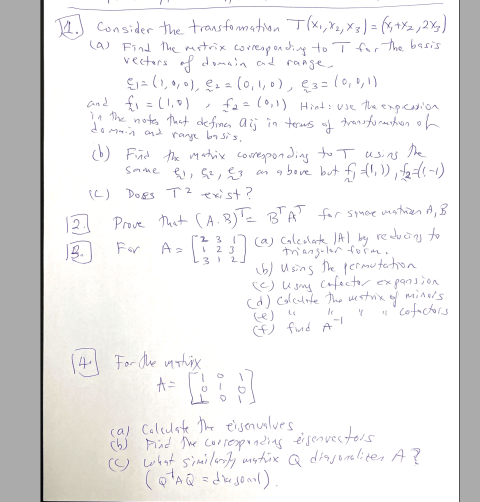 1. Consider the transformation T(x₁,x₂,x₃) = (x₁+x₂, 2x₃)
(a) Find the matrix corresponding to T for the basis
vectors of domain and range.
e₁ = (1,0,0), e₂ = (0,1,0), e₃ = (0,0,1)
and f₁ = (1,0), f₂ = (0,1) Hint: use the expression
in the notes that defines aij in terms of transformation of
domain and range basis.
(b) Find the matrix corresponding to T using the
same e₁, e₂, e₃ as above but f₁=(1,1), f₂=(1-1)
(c) Does T² exist?
2. Prove that (A.B)ᵀ = BᵀAᵀ for square matrices A, B
3. For A = [2 3 1 (a) Calculate |A| by reducing to
1 2 3 triangular form.
3 1 2] (b) Using the permutation
(c) Using cofactor expansion
(d) Calculate the matrix of minors
(e) " " " " cofactors
(f) find A⁻¹
4. For the matrix
A = [1 0 1
0 1 0
1 0 1]
(a) Calculate the eigenvalues
(b) Find the corresponding eigenvectors
(c) What similarity matrix Q diagonalizes A?
(Q⁻¹AQ = diagonal).